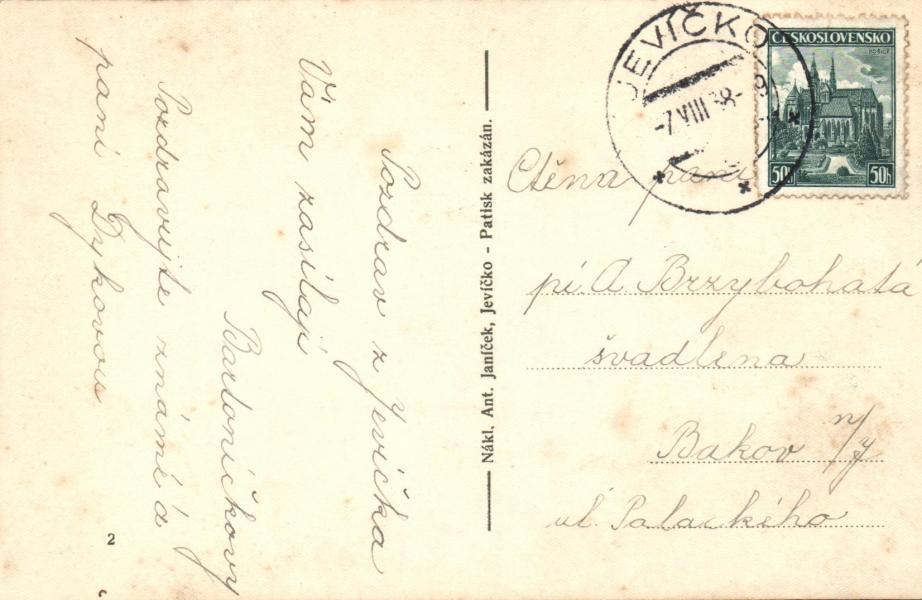 Pozdrav z Jevíčka
Vám zasílají
Bartoníčkovy
Pozdravujte známé a
paní Dykovou
2
Nákl. Ant. Janíček, Jevíčko - Patisk zakázán.
JEVÍČKO
-7.VIII 38-
ČESKOSLOVENSKO
50h 50h
Ctěná paní
pí. A. Brzybohatá
švadlena
Bakov n/J
ul. Palackého